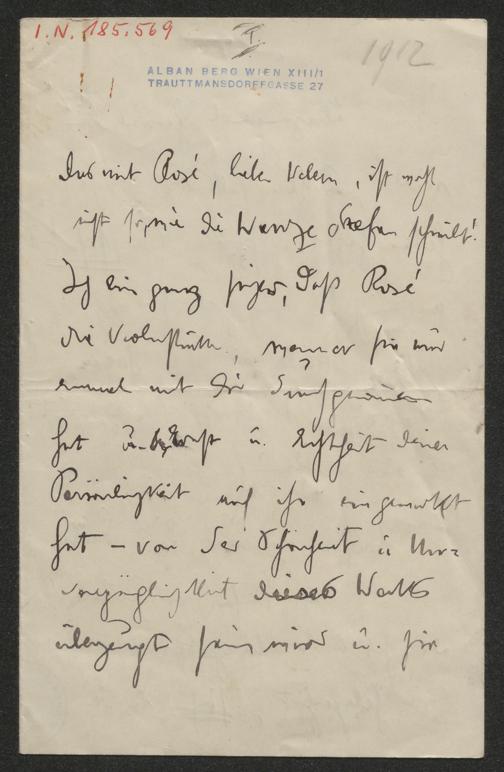 I.N. 185.569
I.
1912
ALBAN BERG WIEN XIII/1
TRAUTTMANSDORFFGASSE 27
Das mit Rosé, lieber Webern, ist wohl
nicht so, wie die Wanze Stefan schreibt!
Ich bin ganz sicher, daß Rosé
die Violinstücke, wenn er sie nur
einmal mit Dir
hat u. u. Echtheit Deiner
Persönlichkeit auf ihn eingewirkt
hat – von der Schönheit u Unver=
gänglichkeit dieses Werks
überzeugt sein wird u. sie